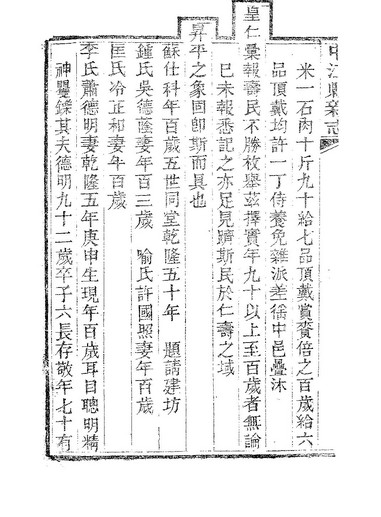 中江縣新志
米一石肉十斤九十給七品頂戴賞賚倍之百歲給六
品頂戴均許一丁侍養免雜派差徭中邑疊沐
皇仁彙報壽民不勝枚舉茲擇實年九十以上至百歲者無論
已未報悉記之亦足見躋斯民於仁壽之域
昇平之象固卽斯而具也
蘇仕科年百歲五世同堂乾隆五十年 題請建坊
鍾氏吳德薩妻年百三歲 喻氏許國照妻年百歲
匡氏冷正和妻年百歲
李氏蕭德明妻乾隆五年庚申生現年百歲耳目聰明精
神矍鑠其夫德明九十二歲卒子六長存敬年七十有